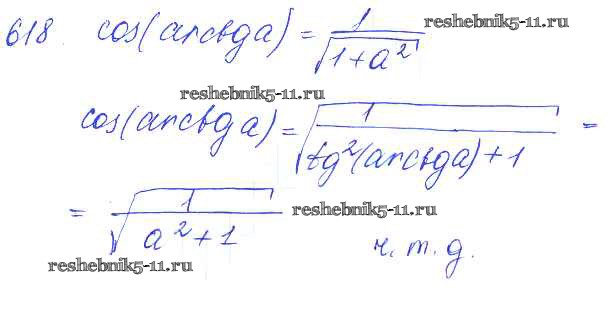 618. cos(arctg a) = 1/√(1+a²)
reshebnik5-11.ru
reshebnik5-11.ru
cos(arctg a) = √(1/(tg²(arctg a)+1)) =
= √(1/(a²+1))
reshebnik5-11.ru
ч. т. д.
reshebnik5-11.ru